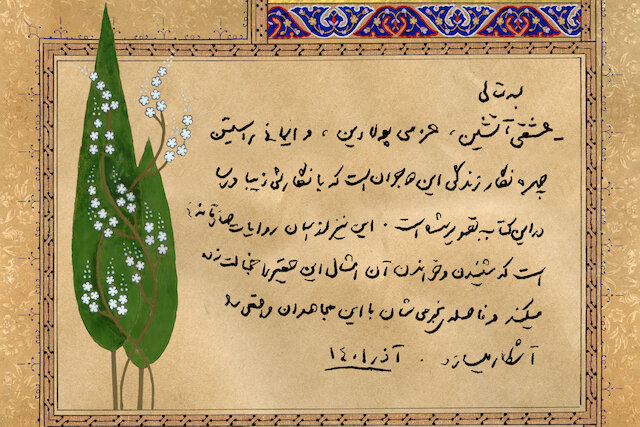 بسمه‌تعالی
عشقی آتشین، عزمی پولادین، و ایمانی راستین
چهره نگار زندگی این مهاجران است که با نگارشی زیبا و رسا
در این کتاب به تصویر شده است. این نیز از آن روایات صادقانه‌ای
است که شنیدن و خواندن آن امثال این حقیر را خجالت زده
میکند و فاصله نجومی‌شان با این مجاهدان واقعی را
آشکار میسازد. آذر ۱۴۰۱